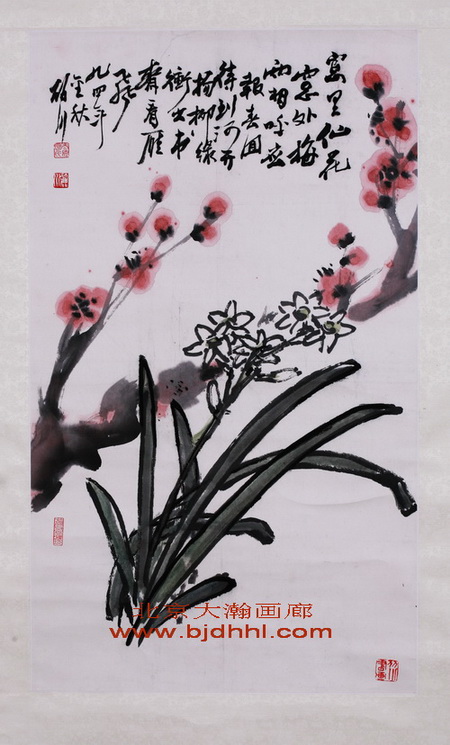 窗里仙花
窗外梅
两相呼应
报春回
待到河开
杨柳绿
衝出书
齋看雁
飛
九四年
金秋
北京大瀚画廊
www.bjdhhl.com